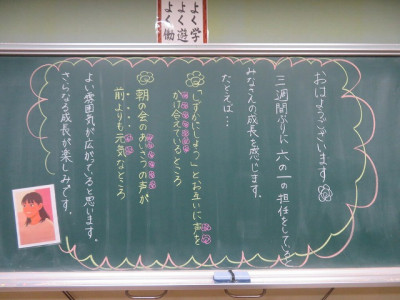 よく学
よく遊
よく働
おはようございます
三週間ぶりに六の一の担任をしていると
みなさんの成長を感じます。
たとえば…
「しずかにしよう」とお互いに声を
かけ合えているところ
朝の会のあいさつの声が
前よりも元気なところ
よい雰囲気が広がっていると思います。
さらなる成長が楽しみです。